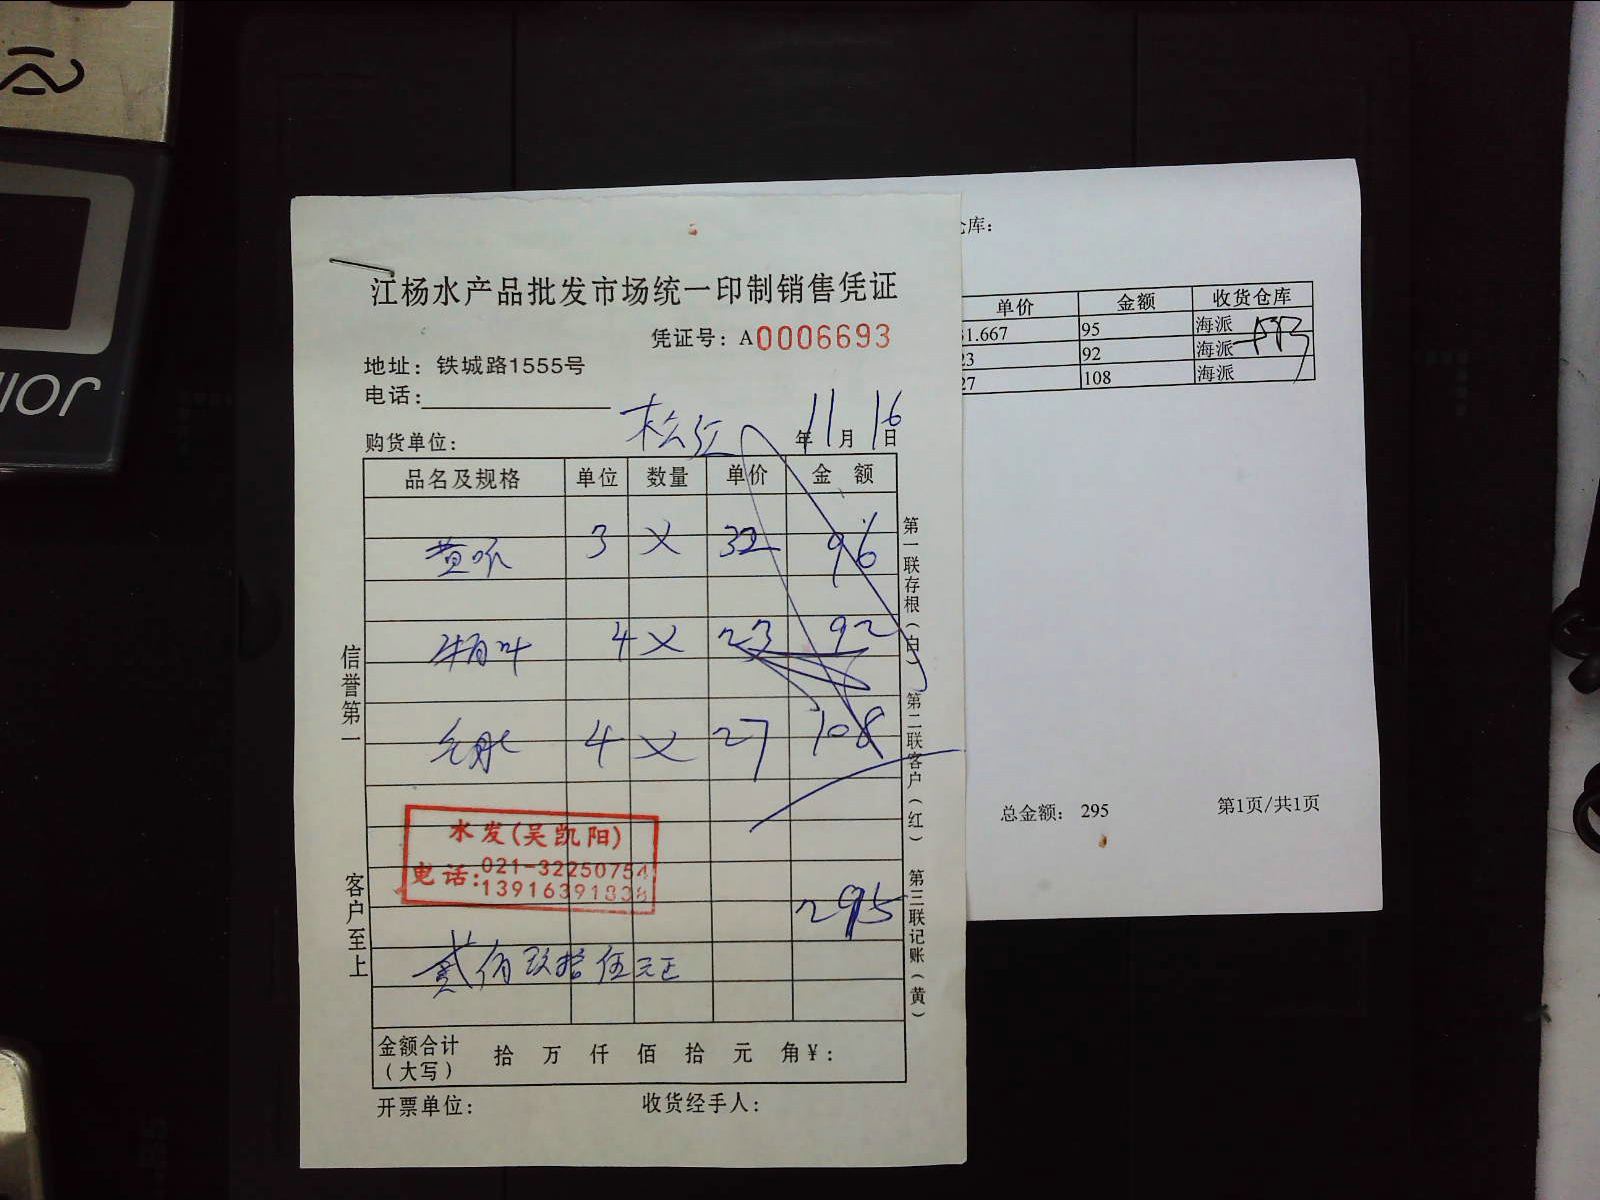 江杨水产品批发市场统一印制销售凭证
凭证号：A0006693
地址：铁城路1555号
电话：
购货单位： 松江 年11月16日
品名及规格 单位 数量 单价 金 额
3 × 32 96
4 × 23 92
4 × 27 108
水发(吴凯阳)
电话：021-32250754
295
贰佰玖拾伍元正
金额合计（大写） 拾 万 仟 佰 拾 元 角¥：
开票单位： 收货经手人：
信誉第一
客户至上
第一联存根（白） 第二联客户（红） 第三联记账（黄）
库：
单价 金额 收货仓库
1.667 95 海派
23 92 海派
27 108 海派
总金额： 295 第1页/共1页